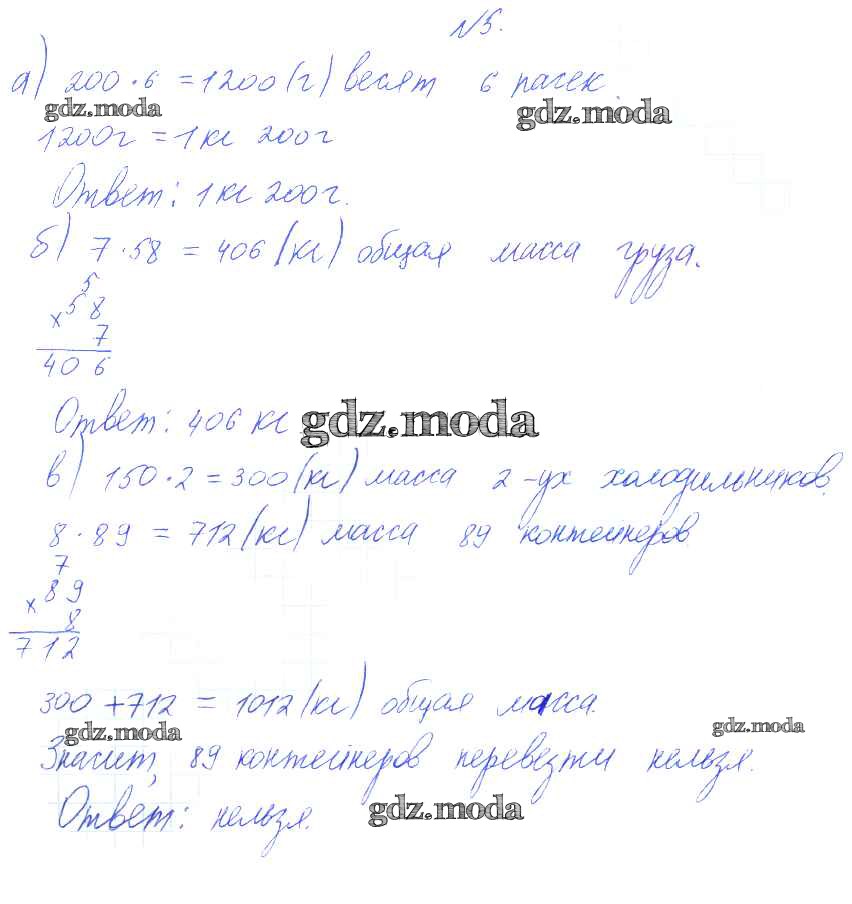 №5.
а) 200 · 6 = 1200 (г) весят 6 пачек.
gdz.moda gdz.moda
1200г = 1 кг 200г
Ответ: 1 кг 200г.
б) 7 · 58 = 406 (кг) общая масса груза.
5
× 58
7
406
Ответ: 406 кг gdz.moda
в) 150 · 2 = 300 (кг) масса 2-ух холодильников.
8 · 89 = 712 (кг) масса 89 контейнеров
7
× 89
8
712
300 + 712 = 1012 (кг) общая масса.
gdz.moda gdz.moda
Значит, 89 контейнеров перевезти нельзя.
Ответ: нельзя. gdz.moda